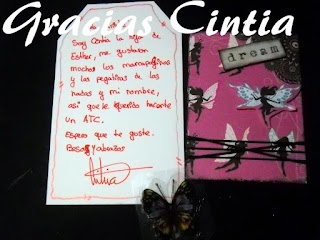 Gracias Cintia
Soy Cintia la hija de
Esther, me gustaron
muchos los marcapaginas
y las pegatinas de las
hadas y mi nombre,
asi que he querido hacerte
un ATC.
Espero que te guste.
Besos y abrazos
Cintia
dream